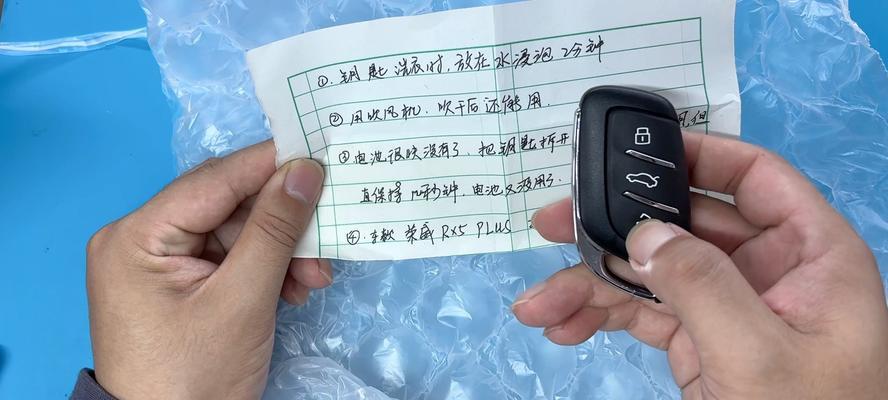 ①.钥匙洗衣时,放在水浸泡2分钟
②用吹风机.吹干后还能用.
③电池很快没有了,把钥匙拆开
直保持 秒钟,电池又没用了.
④.车款 荣威 RX5 PLUS